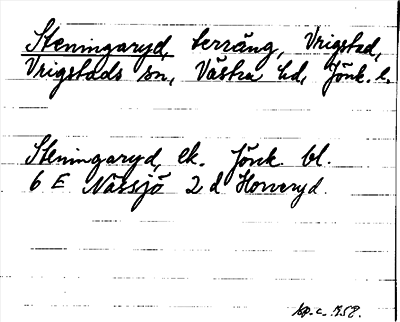 Steningaryd, terräng, Vrigstad,
Vrigstads sn, Västra hd, Jönk. l.
Steningaryd, ek. Jönk. bl.
6 E Nässjö 2 d Horveryd.